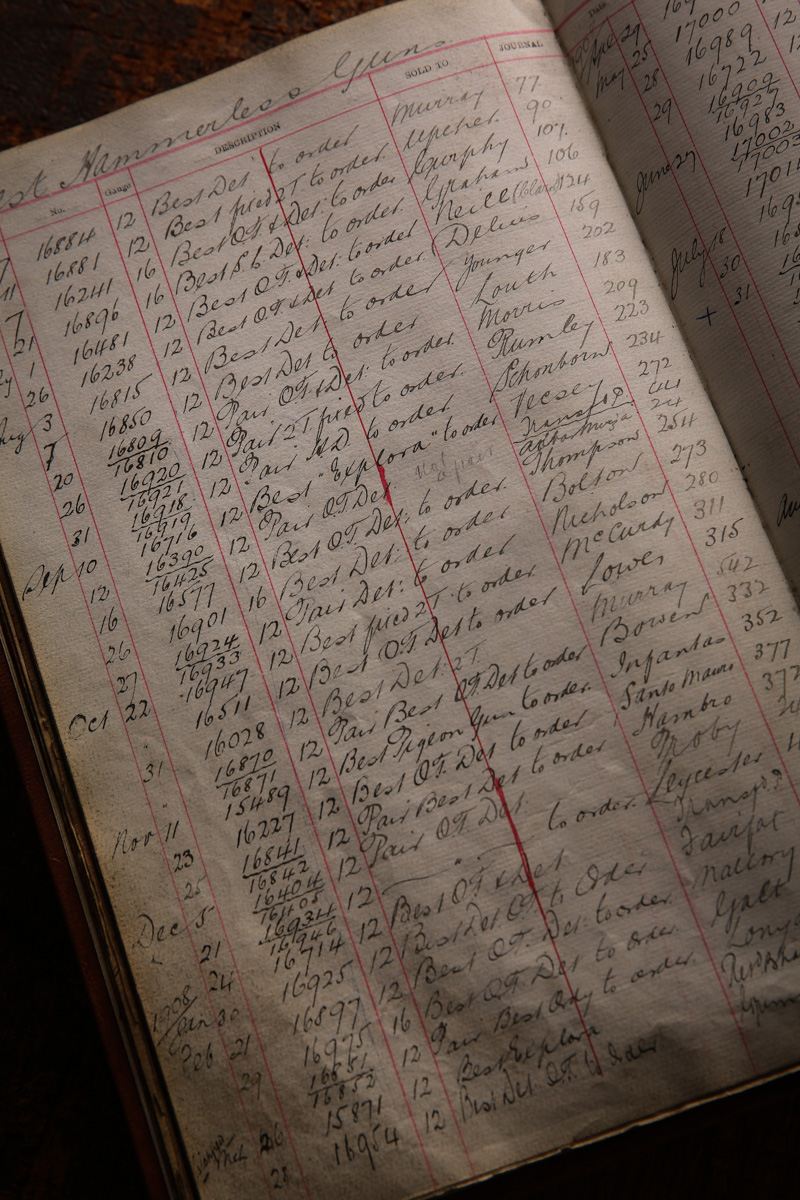 est Hammerless Guns
No. Gauge DESCRIPTION SOLD TO JOURNAL
7 16884 12 Best Det. to order Murray 77
11 16881 12 Best fixed 2T to order Upcher 90
7 16241 16 Best O.T. & Det: to order Murphy 107
21 16896 16 Best S.b. Det: to order Graham 106
1 16481 12 Best O.T. & Det: to order Neill 124
26 16238 12 Best OT & Det to order (Delius 159
Aug 3 16815 12 Best Det: to order Younger 202
7 16850 12 Best Det to order Louth 183
20 16809 12 Pair OT & Det: to order Morris 209
16810
26 16920 12 Pair 2T fixed to order Rumley 223
16921
31 16918 12 Pair to order Schonborn 234
16919
Sep 10 16716 12 Best "Explora" to order Vecsey 272
12 16390 12 Pair OT Det. not a pair Transfd 44
16425 24
16 16577 12 Best OT. Det: to order Thompson 254
26 16901 16 Best Det: to order Bolton 273
27 16924 12 Pair Det: to order Nicholson 280
16933
Oct 22 16947 12 Best fixed 2T. to order McCurdy 311
" 16511 12 Best OT Det to order Lowes 315
31 16028 12 Best Det: 2T Murray 542
" 16870 12 Pair Best OT Det to order Bowen 332
16871
Nov 11 15489 12 Best Pigeon Gun to order Infantas 352
23 16227 12 Best OT. Det to order Santo Mauro 377
25 16841 12 Pair Best Det to order Hambro 372
16842
Dec 5 16404 12 Pair OT. Det
16405
21 16934 12 " to order Leycester
16946
24 16714 12 Best OT & Det Transfd
1908
Jan 30 16925 12 Best Det OT to Order Fairfax
Feb 21 16897 12 Best OT. Det: to order Mallory
29 16975 16 Best OT Det to order Galt
16851 12 Pair Best to order
16852
26 15871 12 Best Explora
28 16954 12 Best Det OT. to order
Date
Apr 29 17000
May 25 16989
28 16722
29 16909
16927
16983
17002
June 27 17003
July 18
30
+ 31